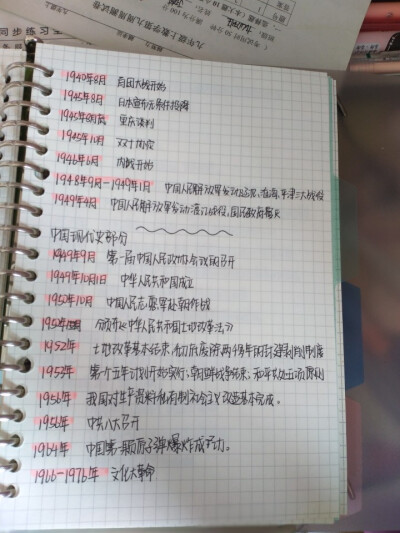 九年级上数学第九周周测试卷
同步练习
1940年8月 百团大战开始
1945年8月 日本宣布无条件投降
1945年8月底 重庆谈判
1945年10月 双十协定
1946年6月 内战开始
1948年9月-1949年1月 中国人民解放军发动辽沈、淮海、平津三大战役
1949年4月 中国人民解放军发动渡江战役，国民政府覆灭
中国现代史部分
1949年9月 第一届中国人民政协会议的召开
1949年10月1日 中华人民共和国成立
1950年10月 中国人民志愿军赴朝作战
1950年 颁布《中华人民共和国土地改革法》
1952年 土地改革基本结束，彻底废除两千多年的封建剥削制度
1953年 第一个五年计划开始实行，朝鲜战争结束，和平共处五项原则
1956年 我国对生产资料私有制的社会主义改造基本完成。
1956年 中共八大召开
1964年 中国第一颗原子弹爆炸成功。
1966-1976年 文化大革命